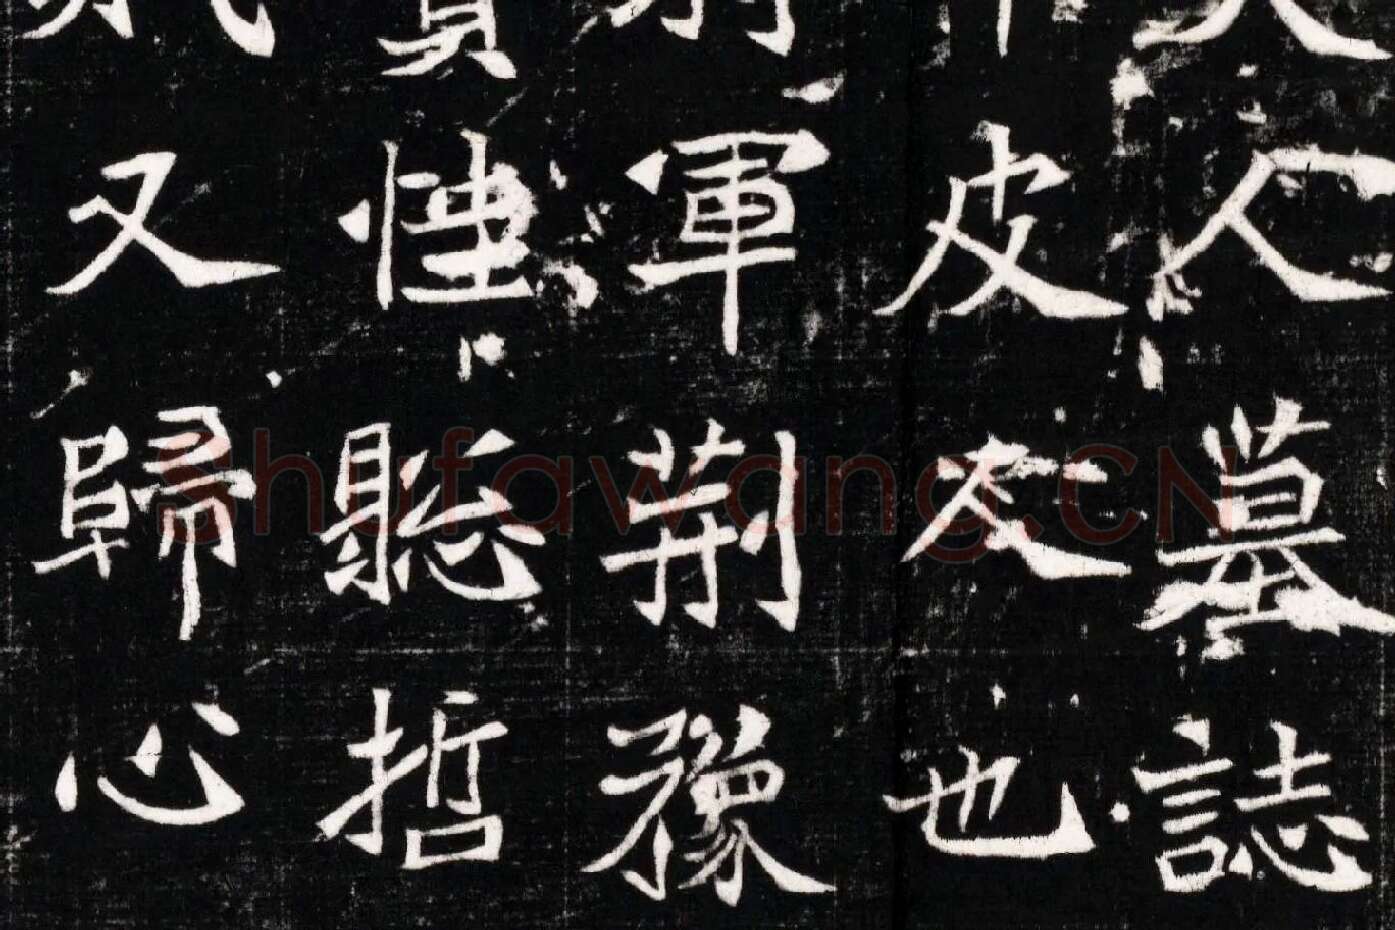 人墓誌
皮友也
軍荊豫
聰哲
又歸心
Shufawang.CN